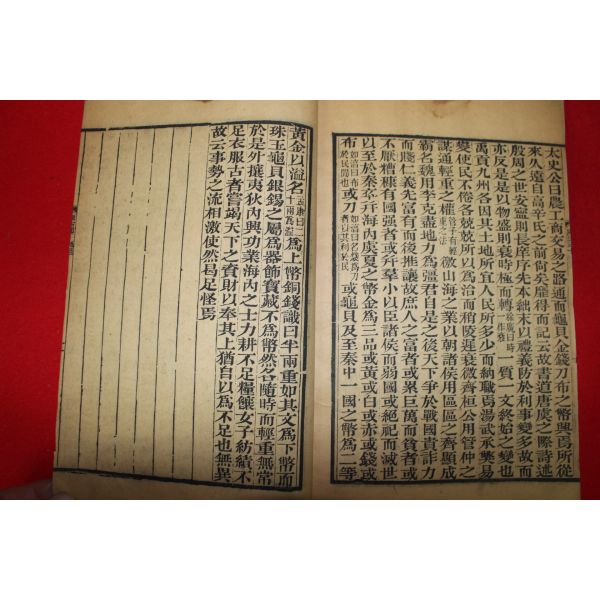 太史公曰農工商交易之路通而龜貝金錢刀布之幣興焉所從
來久遠自高辛氏之前尙矣靡得而記云故書道唐虞之際詩述
殷周之世安寧則長庠序先本絀末以禮義防於利事變多故而
亦反是是以物盛則衰時極而轉徐廣曰時一作衰一質一文終始之變也
禹貢九州各因其土地所宜人民所多少而納職焉湯武承弊易
變使民不倦各兢兢所以爲治而稍陵遲衰微齊桓公用管仲之
謀通輕重之權管子有輕重之法徼山海之業以朝諸侯用區區之齊顯成
霸名魏用李克盡地力爲彊君自是之後天下爭於戰國貴詐力
而賤仁義先富有而後推讓故庶人之富者或累巨萬而貧者或
不厭糟糠有國强者或幷羣小以臣諸侯而弱國或絕祀而滅世
以至於秦卒幷海內虞夏之幣金爲三品或黃或白或赤或錢或
布如淳曰布於民間也或刀如淳曰名錢爲刀者以其利於民也或龜貝及至秦中一國之幣爲二等
黃金以溢名孟康曰二十兩爲溢爲上幣銅錢識曰半兩重如其文爲下幣而
珠玉龜貝銀錫之屬爲器飾寶藏不爲幣然各隨時而輕重無常
於是外攘夷狄內興功業海內之士力耕不足糧饟女子紡績不
足衣服古者嘗竭天下之資財以奉其上猶自以爲不足也無異
故云事勢之流相激使然曷足怪焉